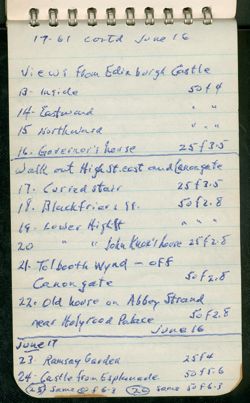 19-61 contd June 16
Views from Edinburgh Castle
13- Inside 50 f 4
14- Eastward " "
15 Northward " "
16. Governor's house 25 f 3.5
Walk out High St. east and Canongate
17. Curved stair 25 f 3.5
18. Blackfriars St. 50 f 2.8
19. Lower High St " " "
20 " " John Knox's house 25 f 2.8
21. Tolbooth Wynd - off
Canongate 50 f 2.8
22. Old house on Abbey Strand
near Holyrood Palace 50 f 2.8
June 16
June 17
23 Ramsay Garden 25 f 4
24- Castle from Esplanade 50 f 5.6
25 Same @ f 6.3 26 Same 50 f 6.3